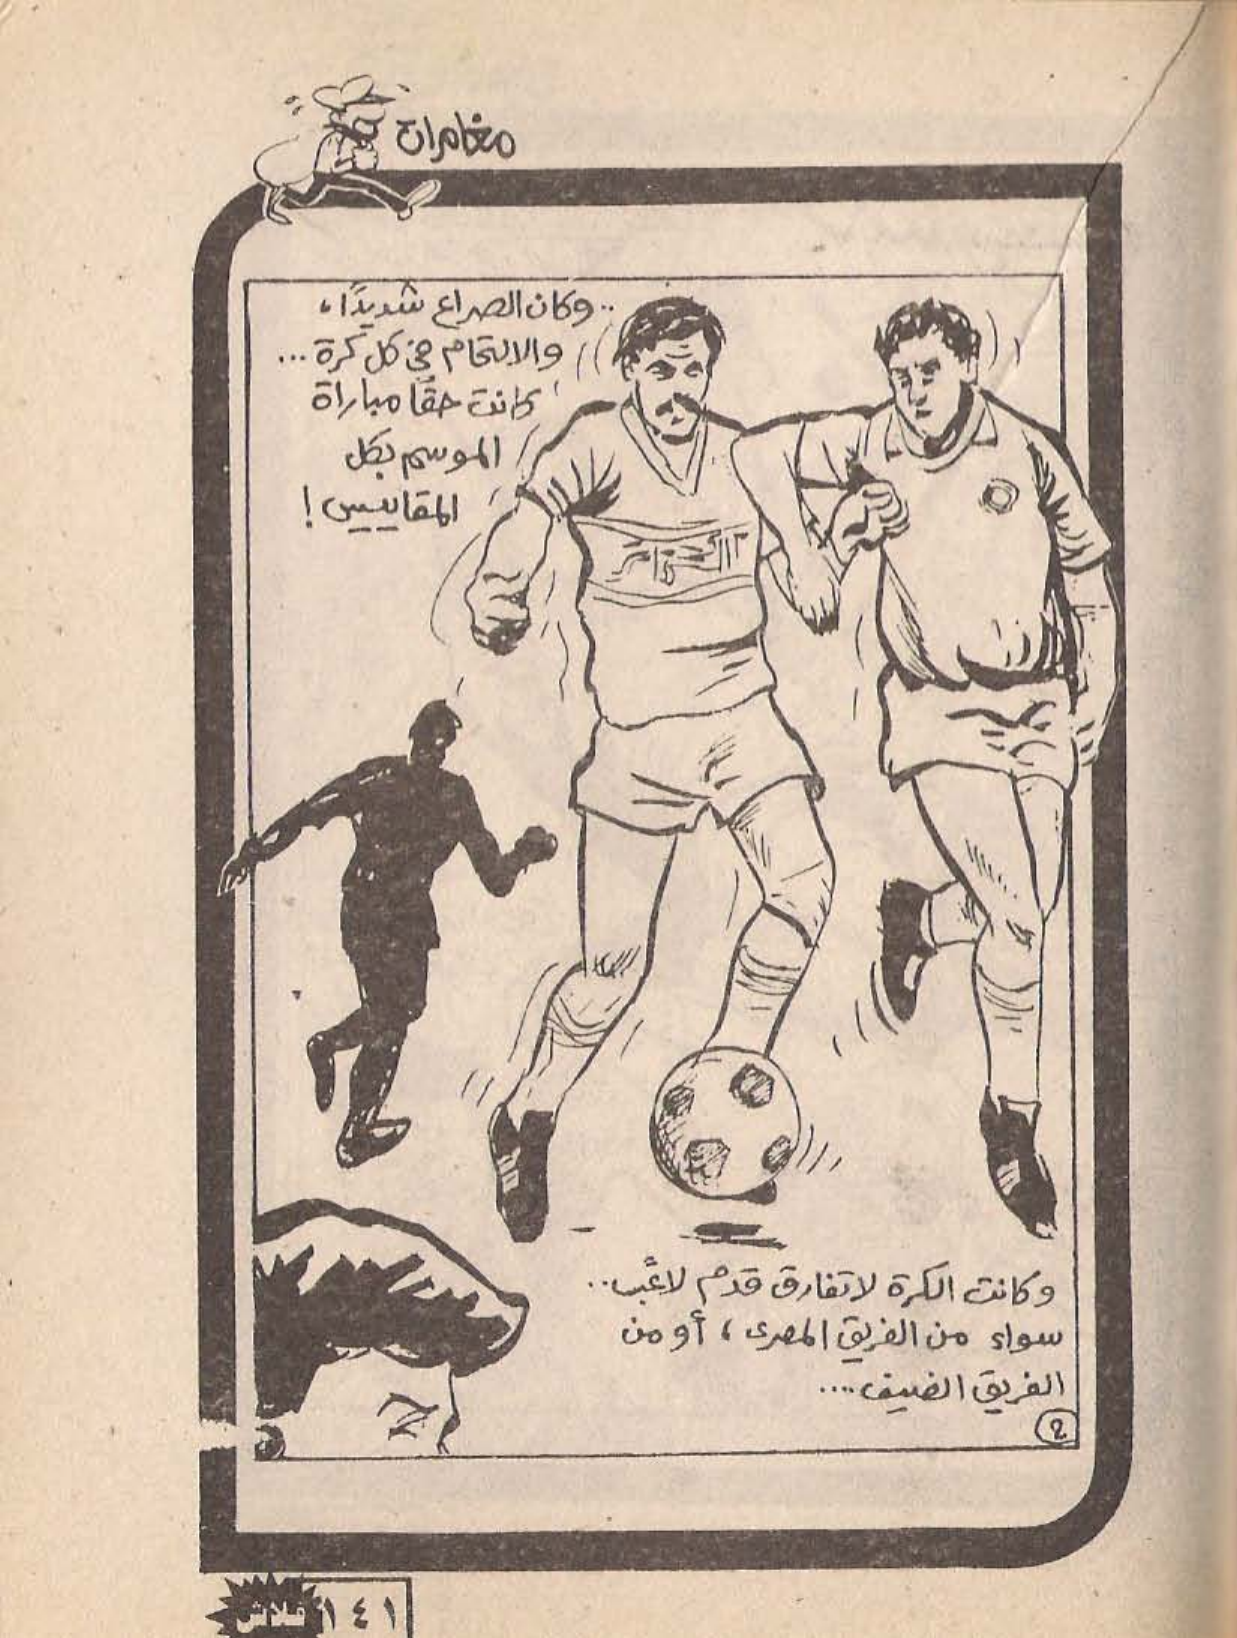 مغامرات
.. وكان الصراع شديدًا،
والالتحام فى كل كرة ...
كانت حقًا مباراة
الموسم بكل
المقاييس !
وكانت الكرة لا تفارق قدم لاعب..
سواء من الفريق المصرى ، أو من
الفريق الضيف....
2
فلاش ١٤١